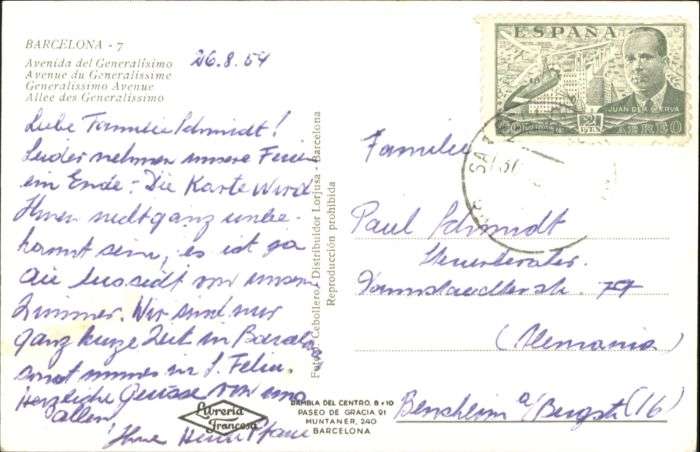 BARCELONA - 7
Avenida del Generalísimo
Avenue du Generalissime
Generalissimo Avenue
Allee des Generalissimo
26.8.54
Liebe Familie Schmidt!
Leider nehmen unsere Ferien
ein Ende. Die Karte wird
Ihnen nicht ganz unbe-
kannt sein, es ist ja
die Aussicht von unserem
Zimmer. Wir sind nur
ganz kurze Zeit in Barcelona
sonst immer in S. Feliu.
Herzliche Grüsse von uns
allen!
Ihre
Cebollero - Distribuidor Lorjusa - Barcelona
Reproducción prohibida
Librería
Francesa
RAMBLA DEL CENTRO, 8 y 10
PASEO DE GRACIA 91
MUNTANER, 240
BARCELONA
ESPAÑA
JUAN DE LA CIERVA
2 PTAS
AEREO
Familie
Paul Schmidt
Steuerberater
Darmstaedterstr. 77
(Alemania)
Bensheim a/Bergstr (16)